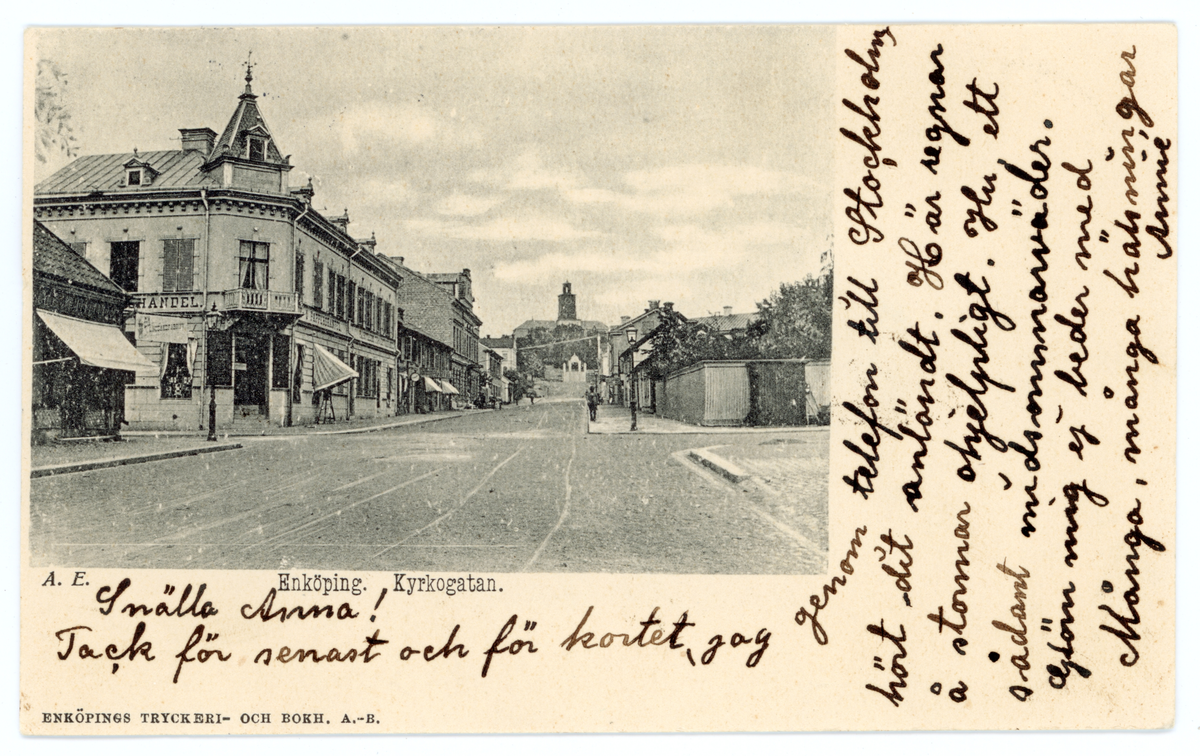 HANDEL.
A. E.
Enköping. Kyrkogatan.
Snälla Anna!
Tack för senast och för kortet, jag
Genom telefon till Stockholm
hört dit anländt. Här regnar
å stormar ohjelpligt. Hu ett
sådant midsommarväder.
Glöm mig ej beder med
Många, många hälsningar
Annie
ENKÖPINGS TRYCKERI- OCH BOKH. A.-B.